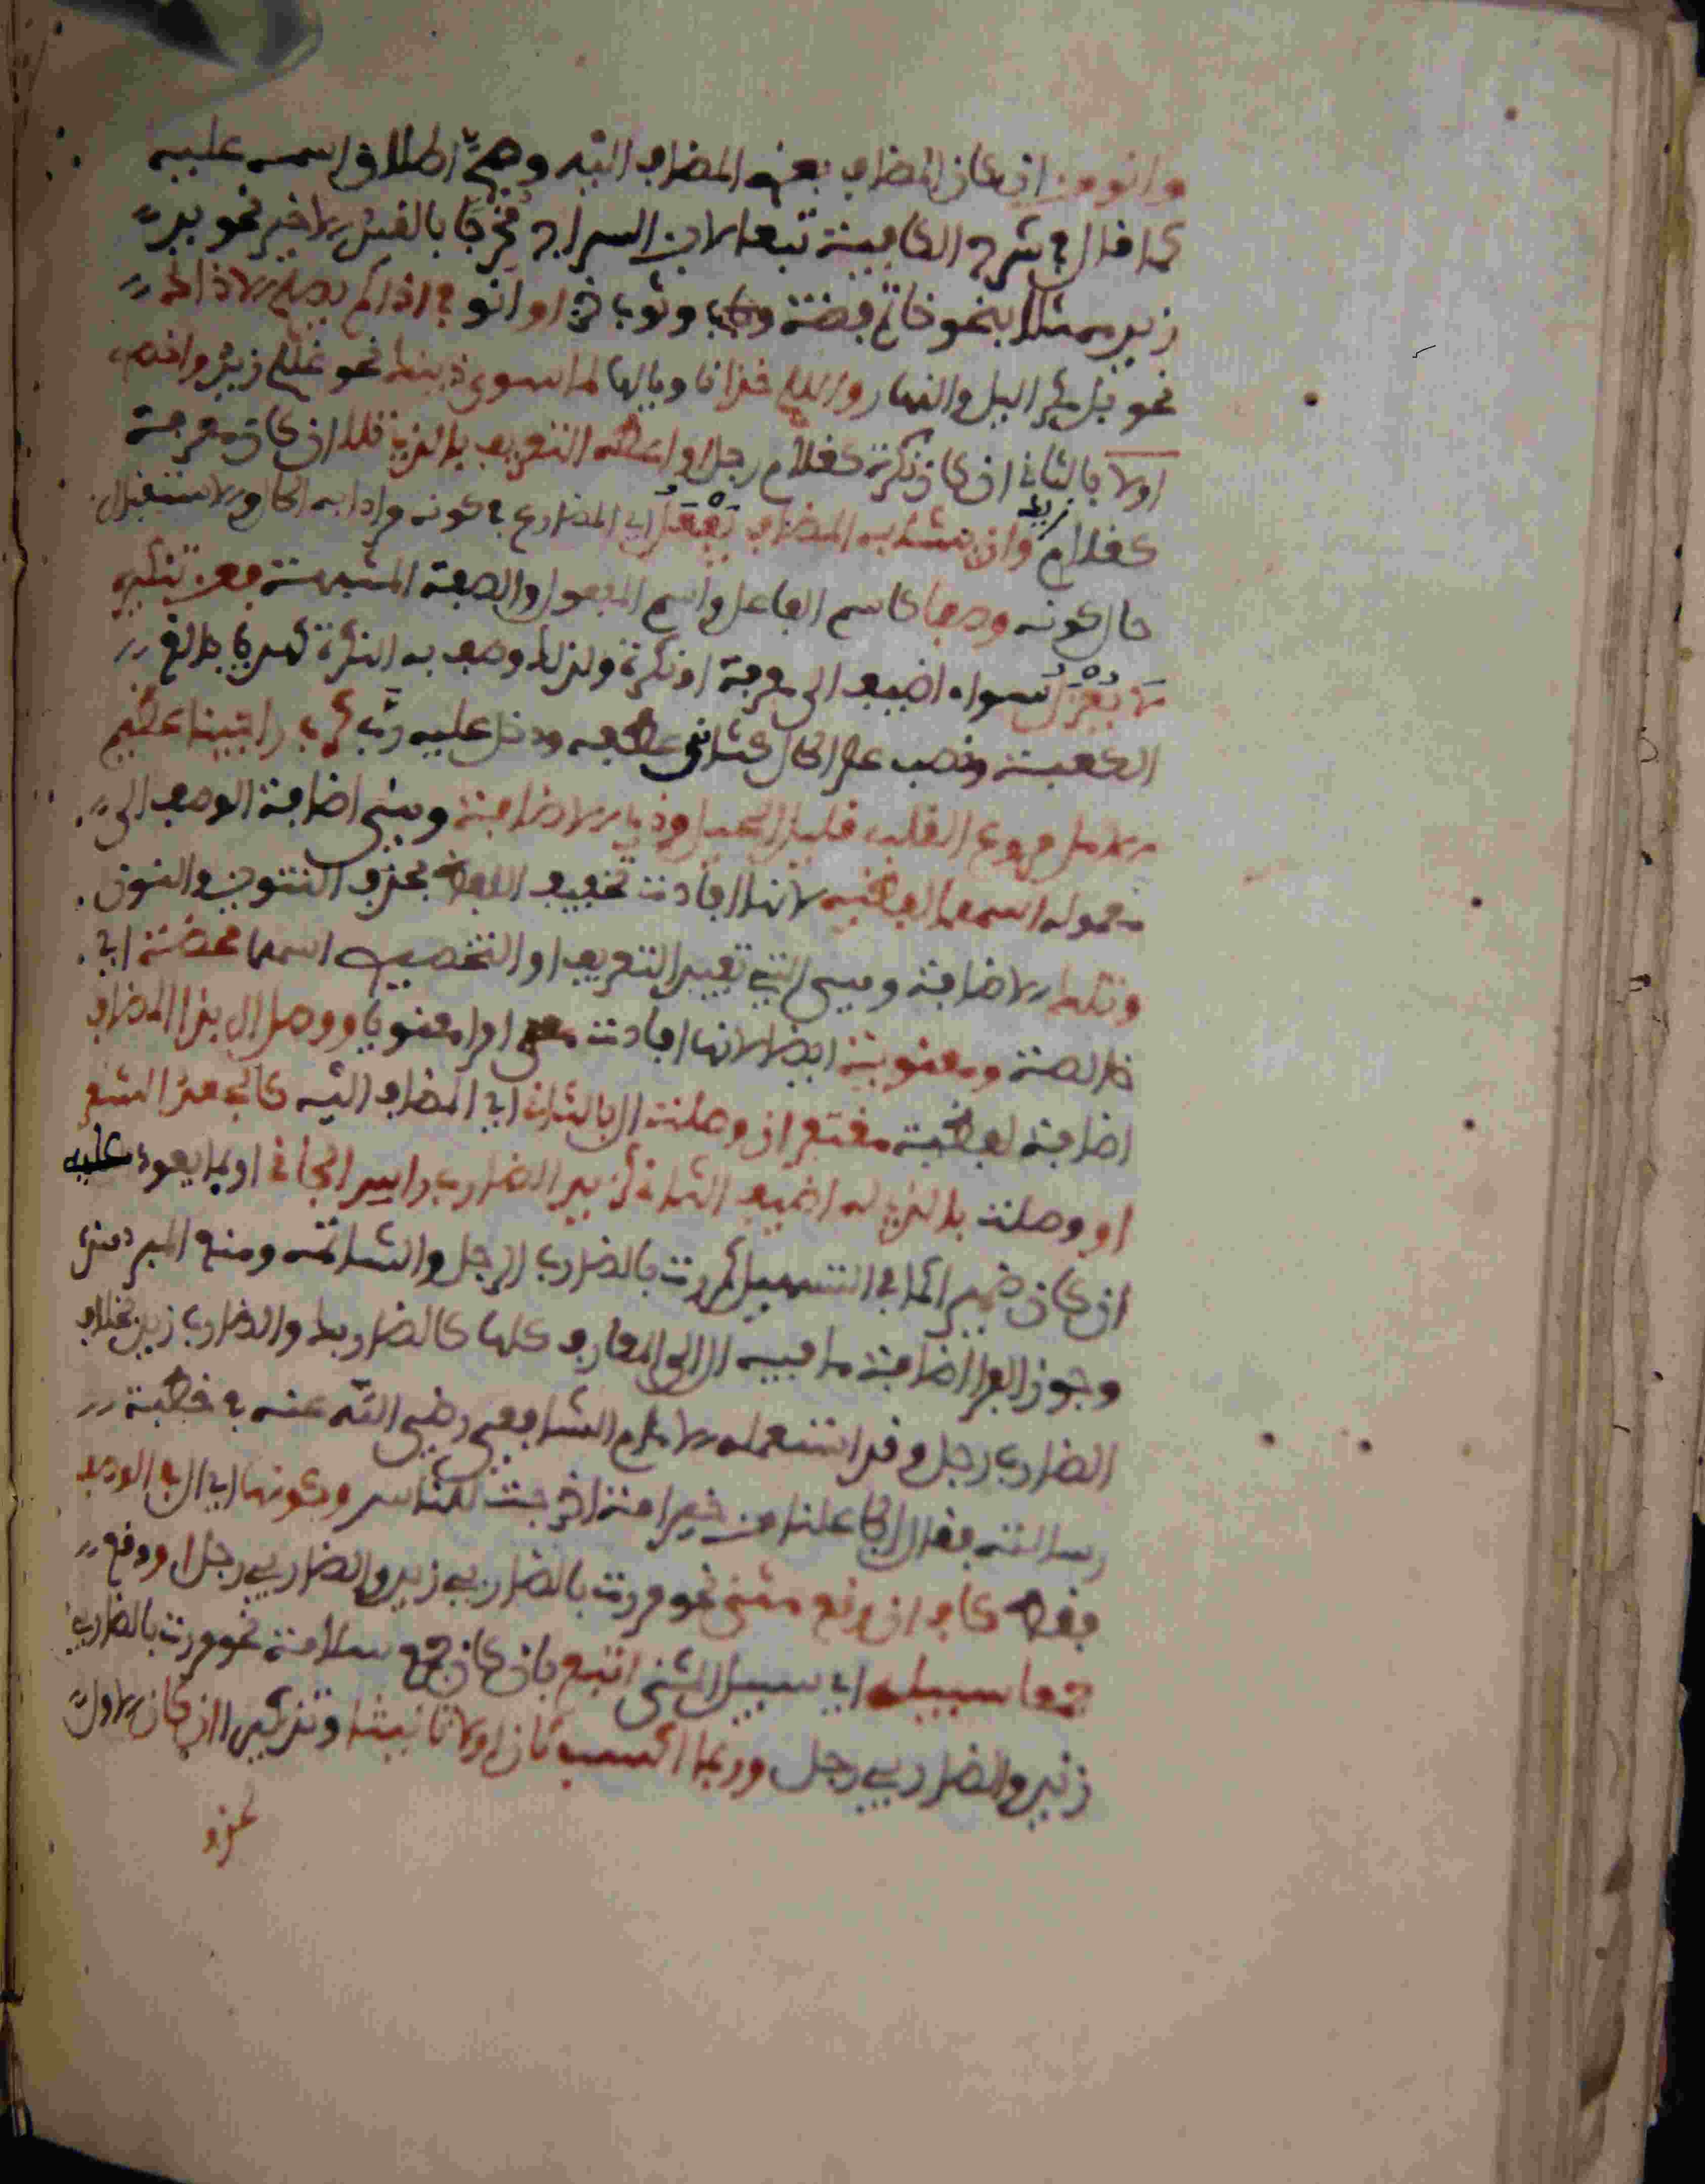 وانو من ان كان المضاف بعض المضاف اليه وصح اطلاق اسمه عليه
كما قال في شرح الكافية تبعا لابن السراج مخرجا بالقيد الاخير نحو يد
زيد ممثلا بنحو خاتم فضة وثوب خز او انو في اذا لم يصلح الا ذاك
نحو بل مكر اليل والنهار واللام خذانا ويا لها لما سوى ذينك نحو غلام زيد واخصص
اولا بالثاني ان كان نكرة كغلام رجل او اعطه التعريف بالذي تلا ان كان معرفة
كغلام زيد وان يشابه المضاف يفعل اي المضارع في كونه مرادا به الحال او الاستقبال
حال كونه وصفا كاسم الفاعل واسم المفعول والصفة المشبهة فعن تنكيره
لا يعزل سواء اضيف الى معرفة او نكرة ولذلك وصف به النكرة كهديا بالغ
الكعبة ونصب على الحال كثاني عطفه ودخل عليه رب كرب راجينا عظيم
الامل مروع القلب قليل الحيل وذي الاضافة وهي اضافة الوصف الى
معموله اسمها لفظيه لانها افادت تخفيف اللفظ بحذف التنوين والنون
وتلك الاضافة وهي التي تفيد التعريف او التخصيص اسمها محضة اي
خالصة ومعنوية ايضا لانها افادت امرا معنويا ووصل ال بذا المضاف
اضافة لفظية مغتفر ان وصلت ال بالثاني اي المضاف اليه كالجعد الشعر
او وصلت بالذي له اضيف الثاني كزيد الضارب راس الجاني او بما يعود عليه
ان كان ضميرا كما في التسهيل كمررت بالضارب الرجل والشاتمه ومنع المبرد هذه
وجوز الفرا اضافة ما فيه ال الى المعارف كلها كالضاربك والضارب زيد بخلاف
الضارب رجل وقد استعمله الامام الشافعي رضي الله عنه في خطبة
رسالته فقال الجاعلنا من خير امة اخرجت للناس وكونها اي ال في الوصف
فقط كاف ان وقع مثنى نحو مررت بالضاربي زيد والضاربي رجل او وقع
جمعا سبيله اي سبيل المثنى اتبع بان كان جمع سلامة نحو مررت بالضاربي
زيد والضاربي رجل وربما اكسب ثان اولا تانيثا وتذكيرا ان كان الاول
لحذف